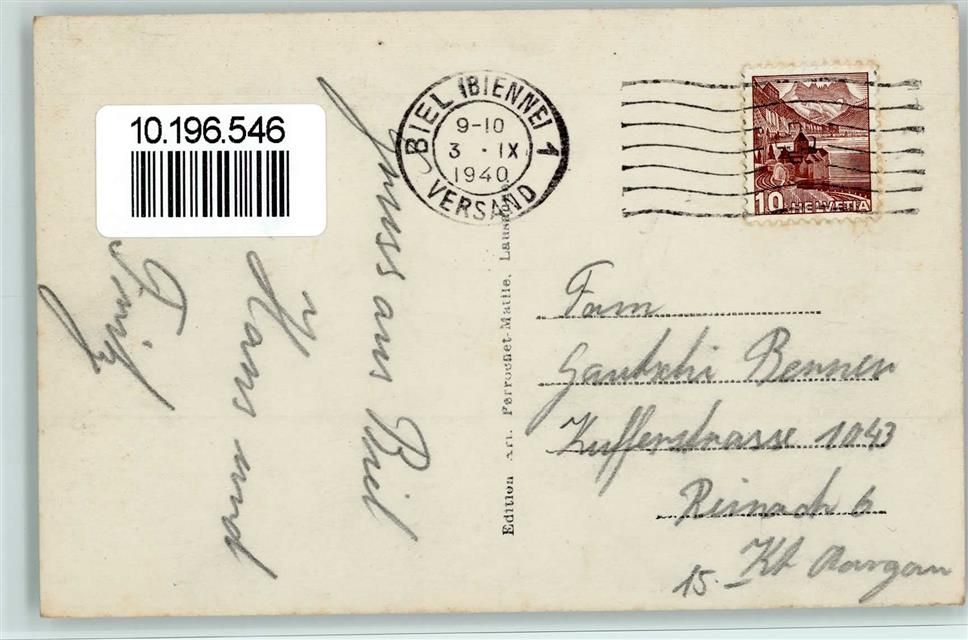 10.196.546
BIEL (BIENNE) 1
9-10
3 · IX
1940
VERSAND
10 HELVETIA
Gruss aus Biel
Hans und
Fritz
Edition Art. Perrochet-Matile, Lausanne
Fam
Gautschi Benner
strasse 1043
Reinach 6
Kt Aargau
15.